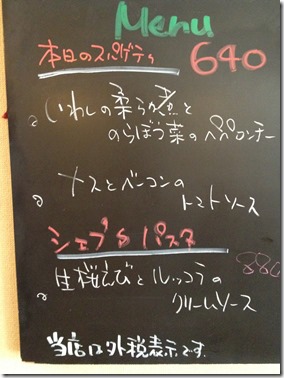 Menu
本日のスパゲティ 640
いわしの柔らか煮と
のらぼう菜のペペロンチーノ
ナスとベーコンの
トマトソース
シェフ's パスタ
880
生桜えびとルッコラの
クリームソース
当店は外税表示です.